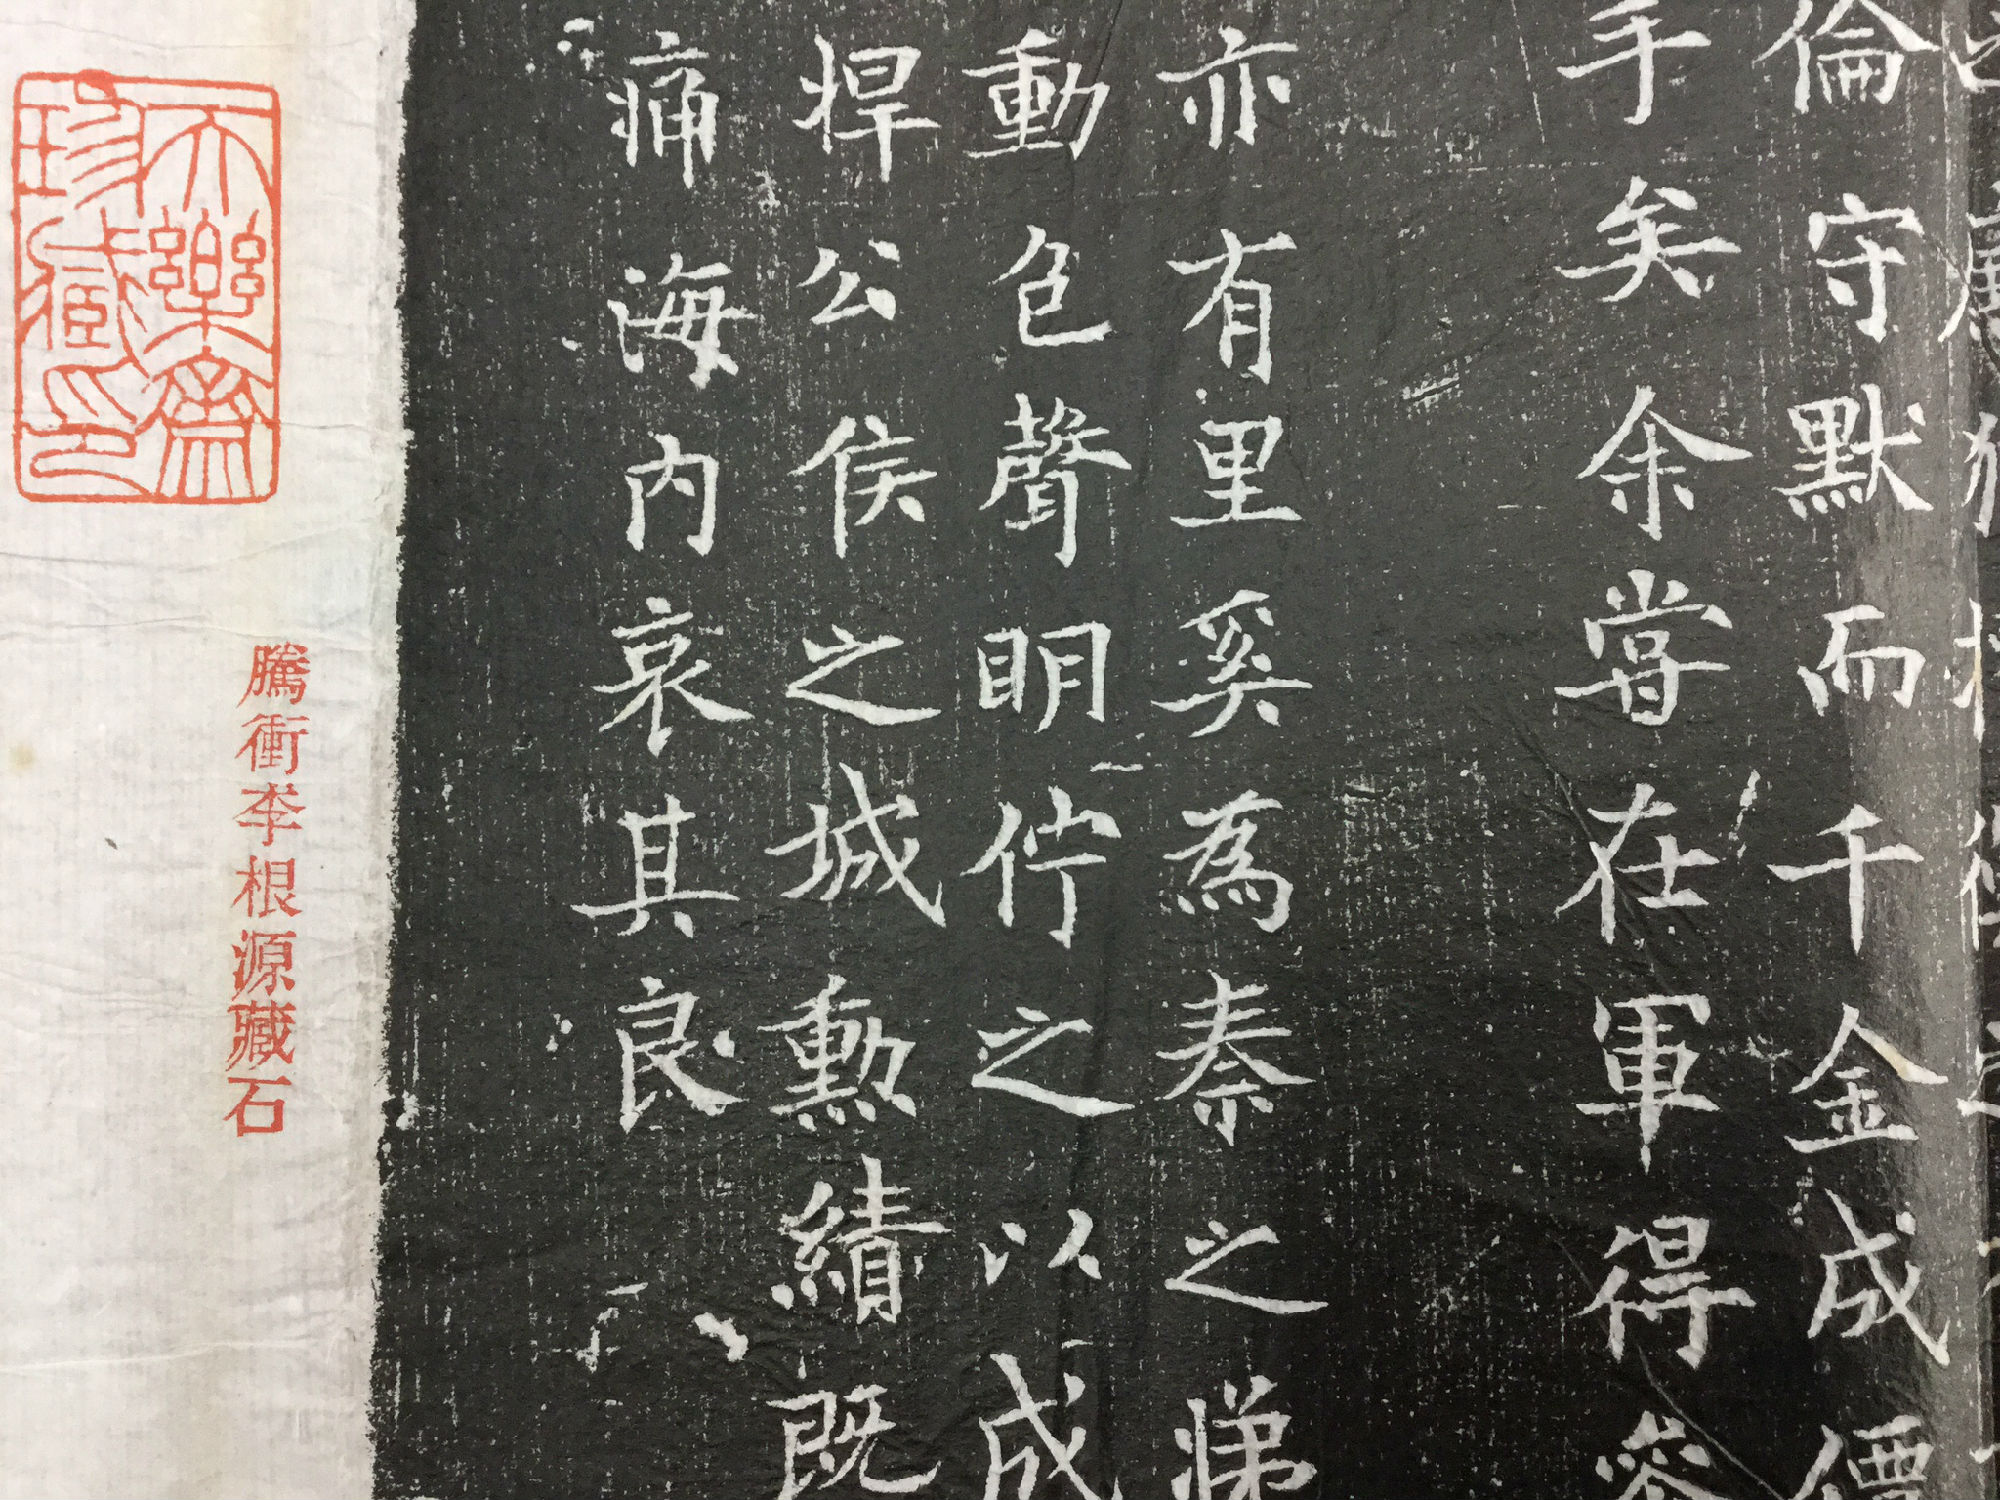 倫守默而千金成價
手矣余嘗在軍得
亦有里奚為秦之
動色聲明佇之以成
悍公侯之城勳績既
痛海內哀其良
騰衝李根源藏石
不樂齋
珍藏印